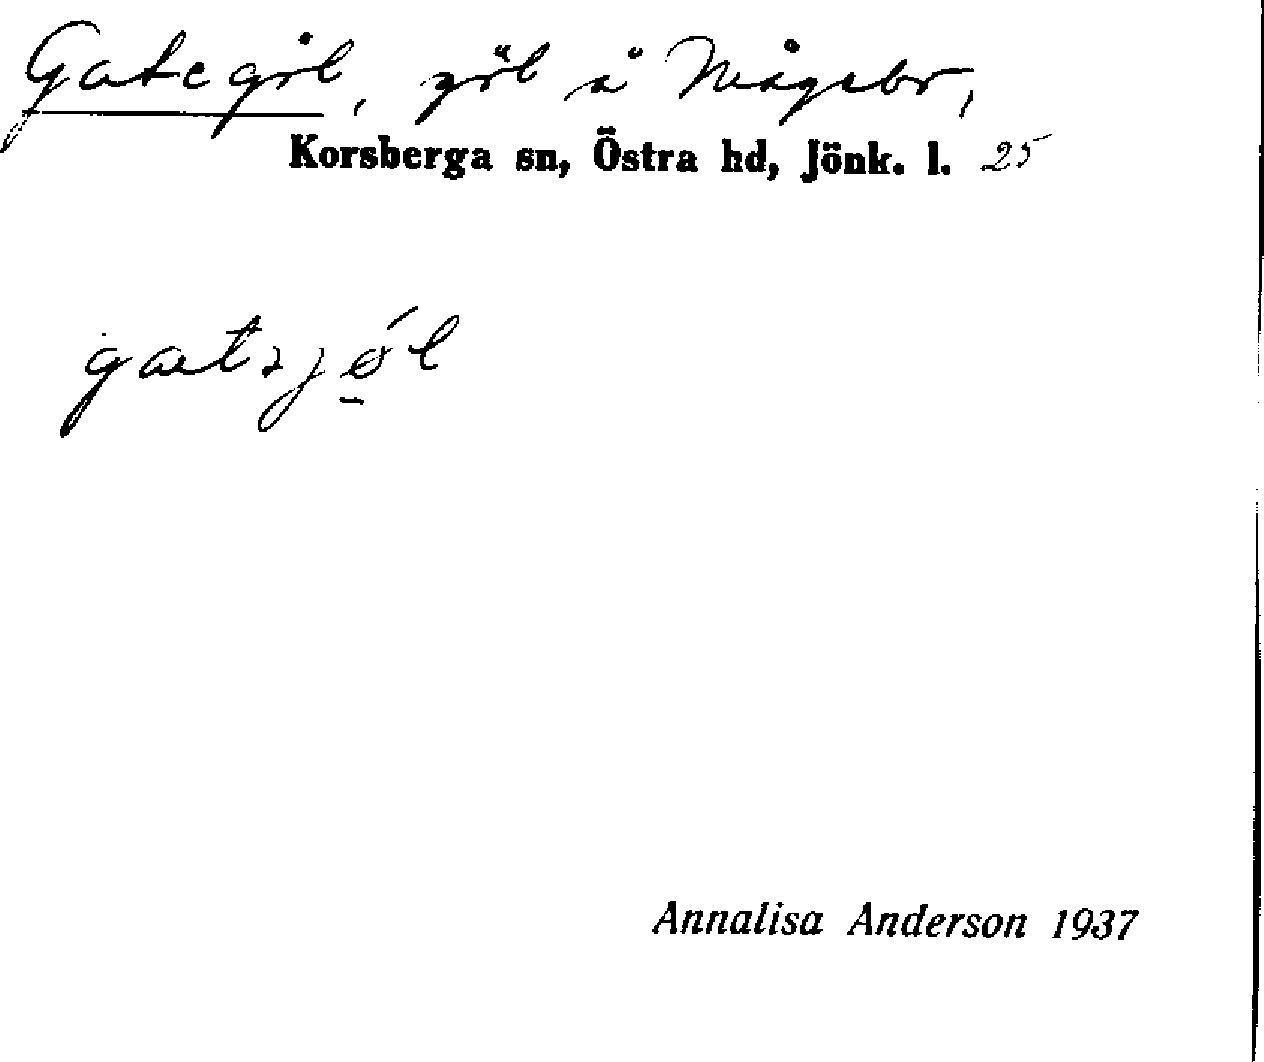 Gategöl, göl å Mågebo,
Korsberga sn, Östra hd, Jönk. l. 25
Annalisa Anderson 1937